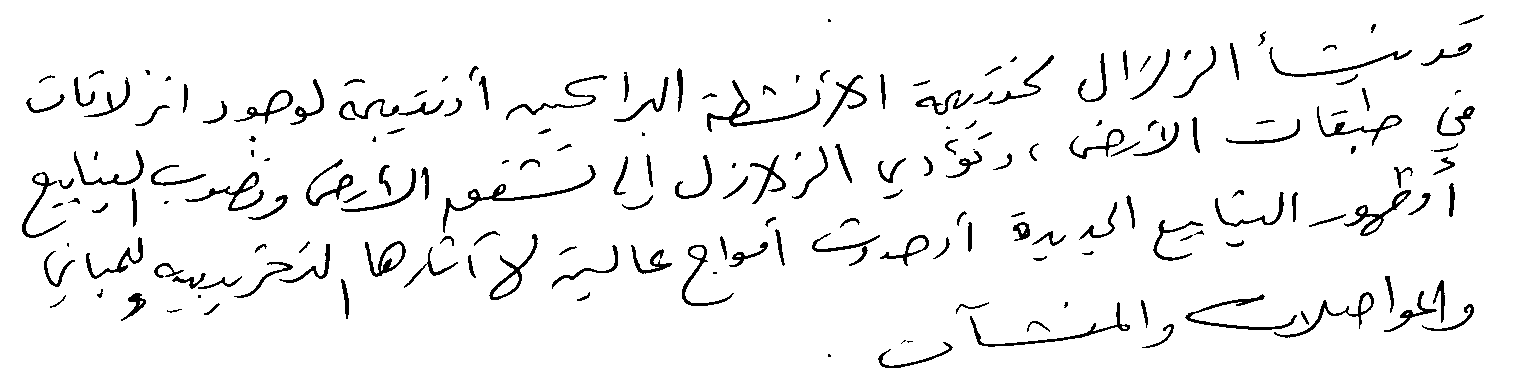 قد ينشأ الزلزال كنتيجة الأنشطة البراكين أو نتيجة لوجود انزلاقات
في طبقات الأرض، وتؤدي الزلازل إلى تشقق الأرض ونضوب الينابيع
أو ظهور الينابيع الجديدة أو حدوث أمواج عالية لا آثارها التخريبيه للمباني
والمواصلات والمنشآت.